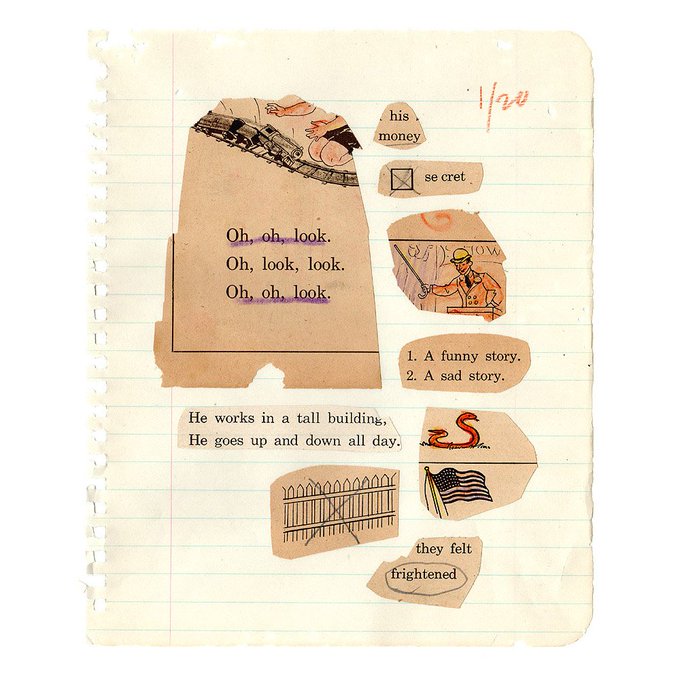 1/20
his
money
se cret
Oh, oh, look.
Oh, look, look.
Oh, oh, look.
1. A funny story.
2. A sad story.
He works in a tall building,
He goes up and down all day.
they felt
frightened